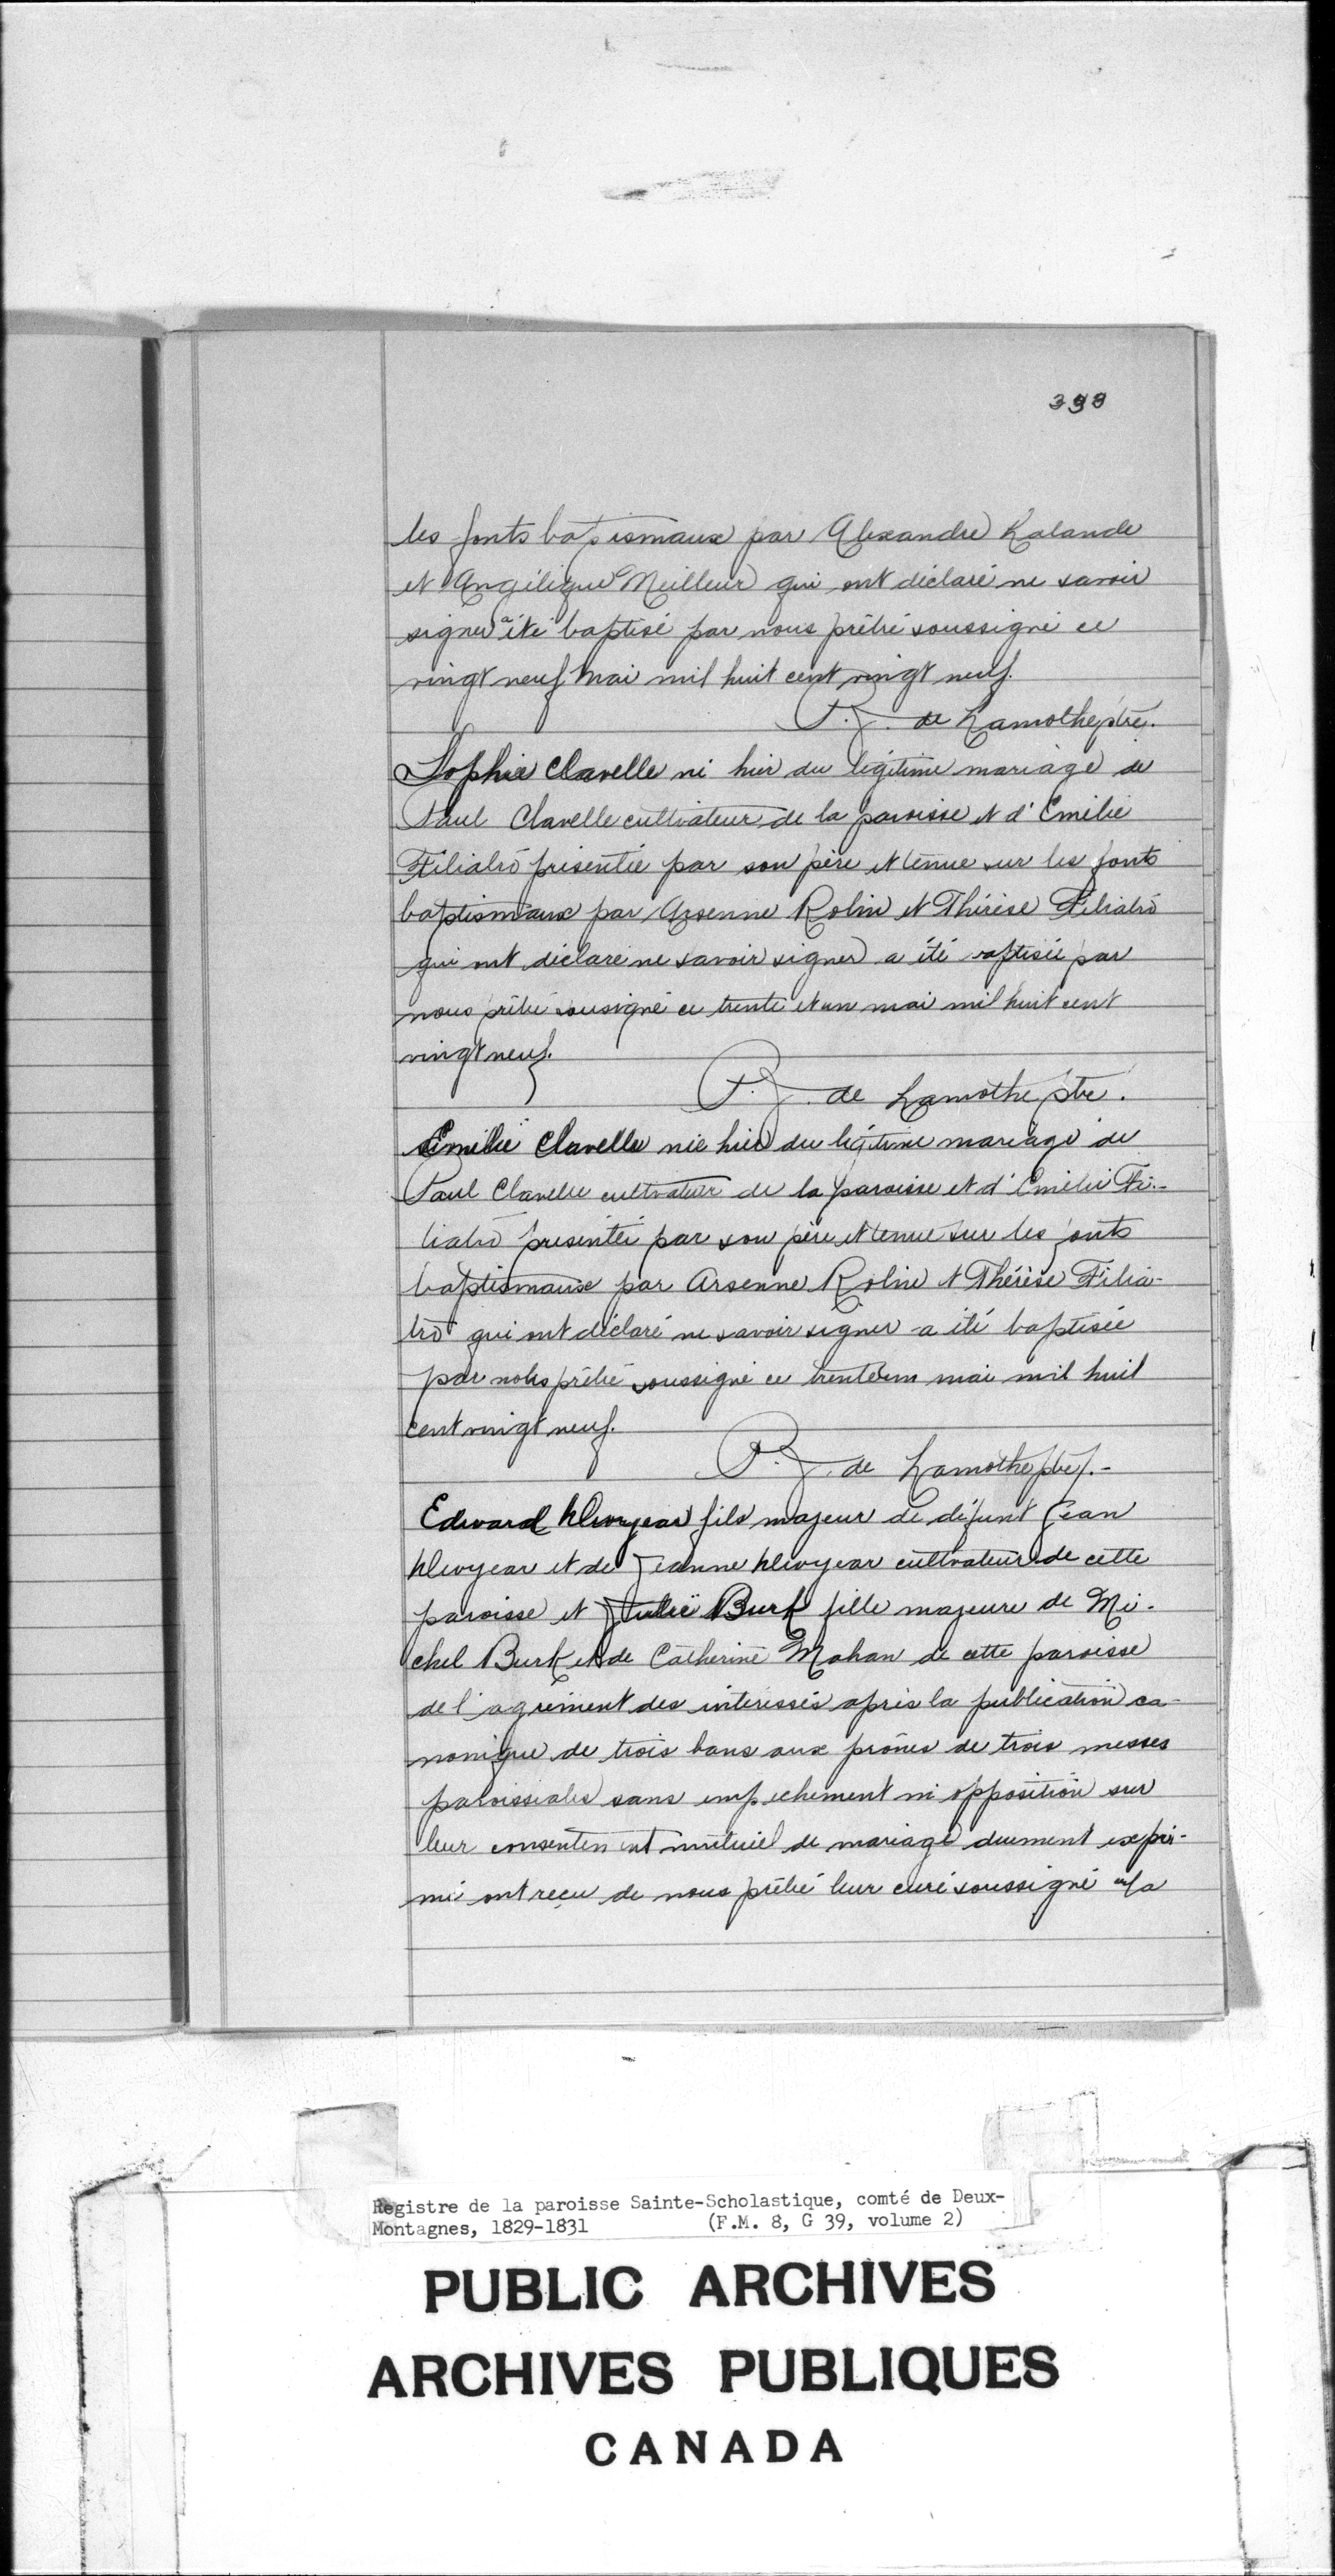 398
les fonts baptismaux par Alexandre Lalande
et Angélique Meilleur qui ont déclaré ne savoir
signer a été baptisé par nous prêtre soussigné ce
vingt neuf mai mil huit cent vingt neuf.
P. J. de Lamothe ptre.
Sophie Clavelle né hier du légitime mariage de
Paul Clavelle cultivateur de la paroisse et d'Emélie
Filiatrô présentée par son père et tenue sur les fonts
baptismaux par Arsenne Rolin et Thérèse Filiatrô
qui ont déclaré ne savoir signer a été baptisée par
nous prêtre sousigné ce trente et un mai mil huit cent
vingt neuf.
P. J. de Lamothe ptre.
Emélie Clavelle née hier du légitime mariage de
Paul Clavelle cultivateur de la paroisse et d'Emélie Fi-
liatrô présentée par son père et tenue sur les fonts
baptismaux par Arsenne Rolin et Thérèse Filia-
trô qui ont déclaré ne savoir signer a été baptisée
par nous prêtre soussigné ce trente un mai mil huit
cent vingt neuf.
P. J. de Lamothe ptre.-
Edward fils majeur de défunt Jean
et de Jeanne cultivateur de cette
paroisse et Julie Burk fille majeure de Mi-
chel Burk et de Catherine Mahan de cette paroisse
de l'agrément des intéressés après la publication ca-
nonique de trois bans aux prônes de trois messes
paroissiales sans empêchement ni opposition sur
leur consentement mutuel de mariage duement expri-
mé ont reçu de nous prêtre leur curé soussigné la
Registre de la paroisse Sainte-Scholastique, comté de Deux-
Montagnes, 1829-1831 (F.M. 8, G 39, volume 2)
PUBLIC ARCHIVES
ARCHIVES PUBLIQUES
CANADA